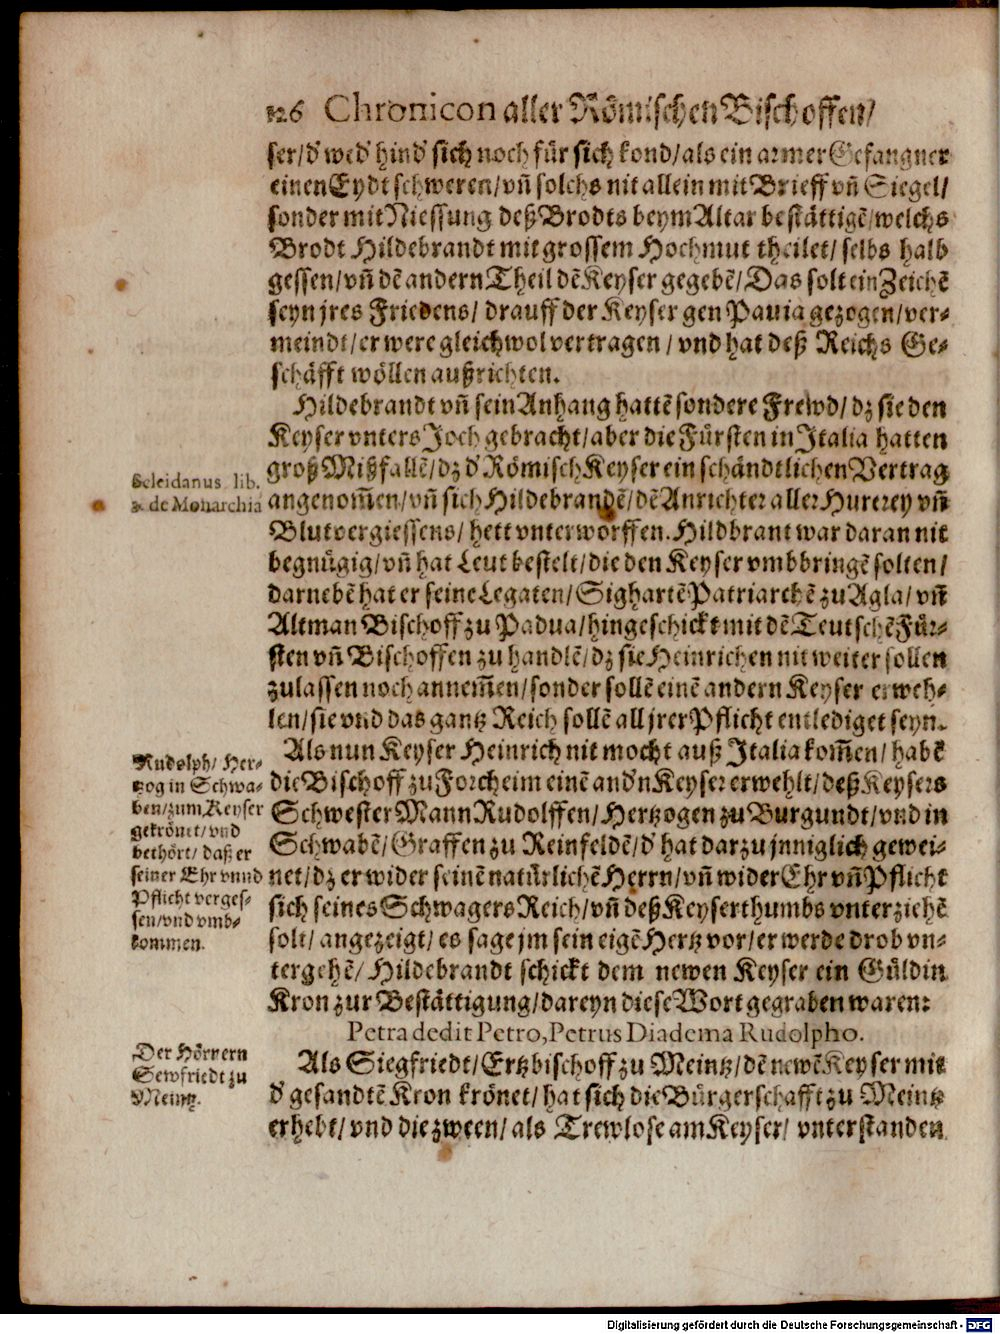 126 Chronicon aller Römischen Bischoffen/
ser/d' wed' hind' sich noch für sich kond/als ein armer Gefangner
einen Eydt schweren/vñ solchs nit allein mit Brieff vñ Siegel/
sonder mit Niessung deß Brodts beym Altar bestättigẽ/welchs
Brodt Hildebrandt mit grossem Hochmut theilet/selbs halb
gessen/vñ dẽ andern Theil dẽ Keyser gegebẽ/Das solt ein Zeichẽ
seyn jres Friedens/drauff der Keyser gen Pauia gezogen/ver-
meindt/er were gleichwol vertragen/vnd hat deß Reichs Ge-
schäfft wöllen außrichten.
Hildebrandt vñ sein Anhang hattẽ sondere Frewd/dz sie den
Keyser vnters Joch gebracht/aber die Fürsten in Italia hatten
groß Mißfallẽ/dz d' Römisch Keyser ein schändtlichen Vertrag
Scleidanus lib.
3. de Monarchia
angenom̃en/vñ sich Hildebrandẽ/dẽ Anrichter aller Hurerey vñ
Blutvergiessens/hett vnterworffen. Hildbrant war daran nit
begnügig/vñ hat Leut bestelt/die den Keyser vmbbringẽ solten/
darnebẽ hat er seine Legaten/Sighartẽ Patriarchẽ zu Agla/vñ
Altman Bischoff zu Padua/hingeschickt mit dẽ Teutschẽ Für-
sten vñ Bischoffen zu handlẽ/dz sie Heinrichen nit weiter sollen
zulassen noch annem̃en/sonder sollẽ einẽ andern Keyser erweh-
len/sie vnd das gantz Reich sollẽ all jrer Pflicht entlediget seyn.
Als nun Keyser Heinrich nit mocht auß Italia kom̃en/habẽ
Rudolph/Her-
tzog in Schwa-
ben/zum Keyser
gekrönet/vnd
bethört/daß er
seiner Ehr vnnd
Pflicht verges-
sen/vnd vmb-
kommen.
die Bischoff zu Forcheim einẽ and'n Keyser erwehlt/deß Keysers
Schwester Mann Rudolffen/Hertzogen zu Burgundt/vnd in
Schwabẽ/Graffen zu Reinfeldẽ/d' hat darzu jnniglich gewei-
net/dz er wider seinẽ natürlichẽ Herrn/vñ wider Ehr vñ Pflicht
sich seines Schwagers Reich/vñ deß Keyserthumbs vnterziehẽ
solt/angezeigt/es sage jm sein eigẽ Hertz vor/er werde drob vn-
tergehẽ/Hildebrandt schickt dem newen Keyser ein Güldin
Kron zur Bestättigung/dareyn diese Wort gegraben waren:
Petra dedit Petro, Petrus Diadema Rudolpho.
Der Hörnern
Sewfriedt zu
Meintz.
Als Siegfriedt/Ertzbischoff zu Meintz/dẽ newẽ Keyser mit
d' gesandtẽ Kron krönet/hat sich die Bürgerschafft zu Meintz
erhebt/vnd die zween/als Trewlose am Keyser/vnterstanden
Digitalisierung gefördert durch die Deutsche Forschungsgemeinschaft - DFG